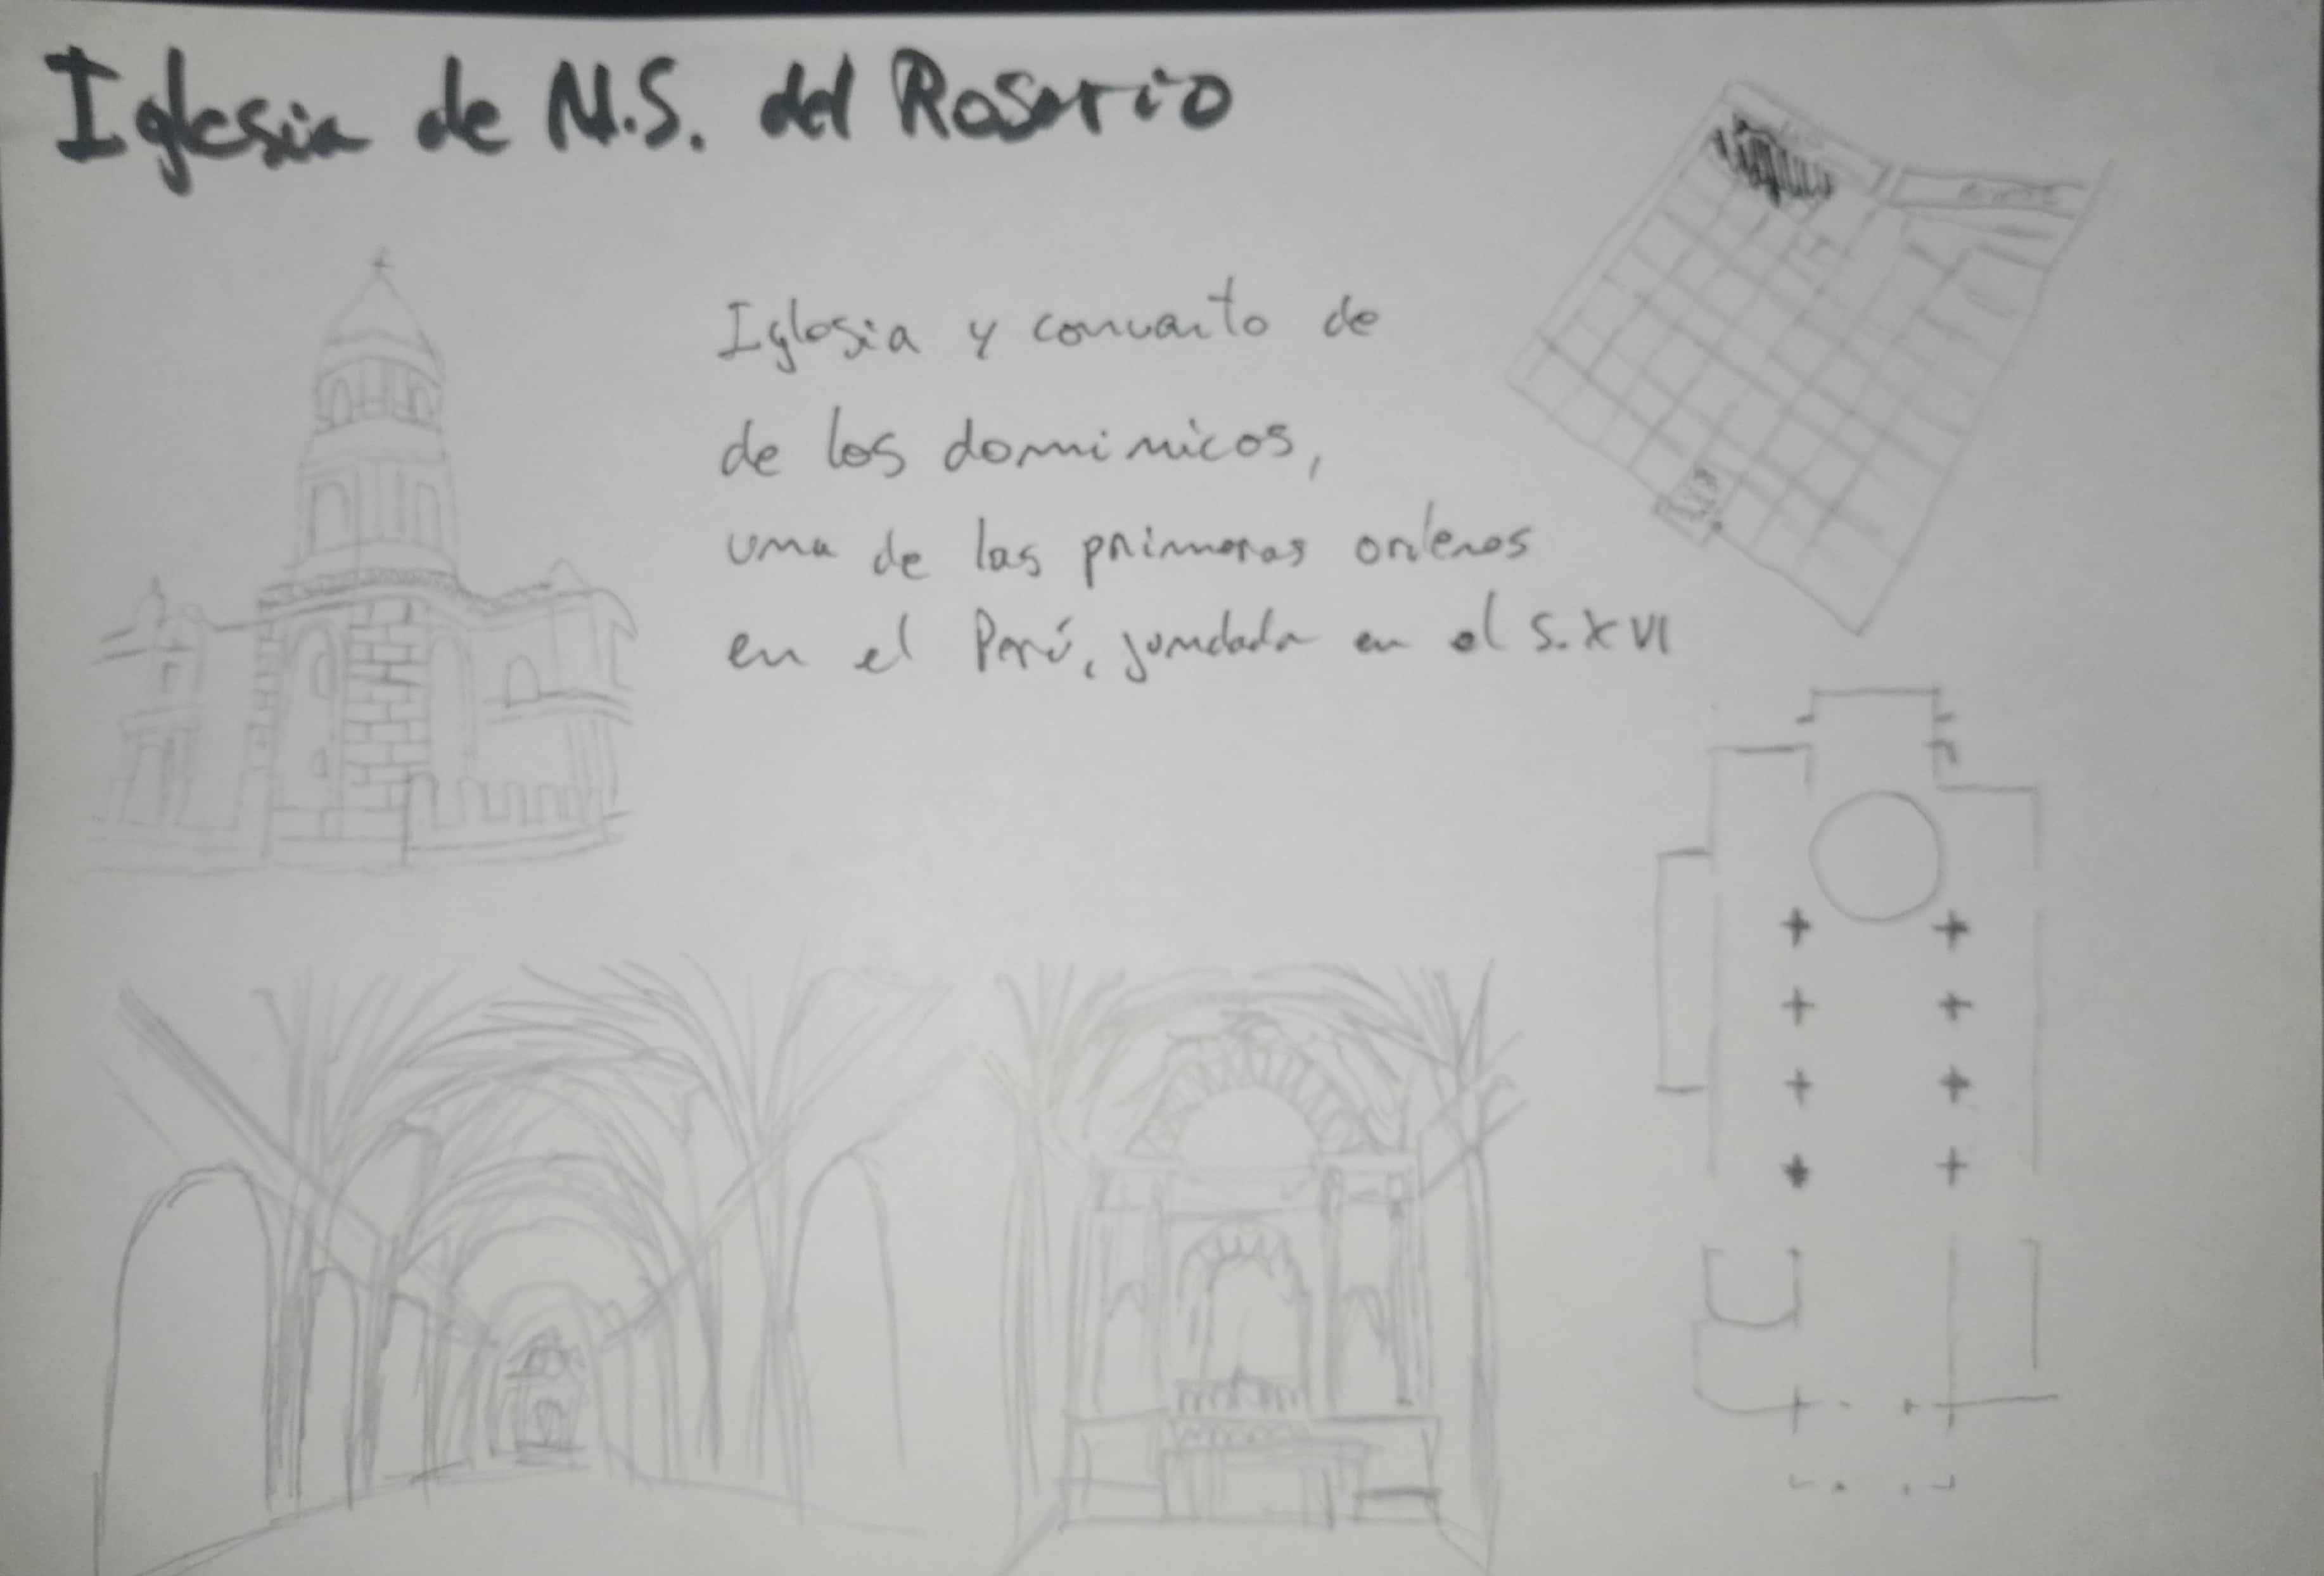 Iglesia de N.S. del Rosario
Iglesia y convento de
de los dominicos,
una de las primeras ordenes
en el Perú, fundada en el S. XVI